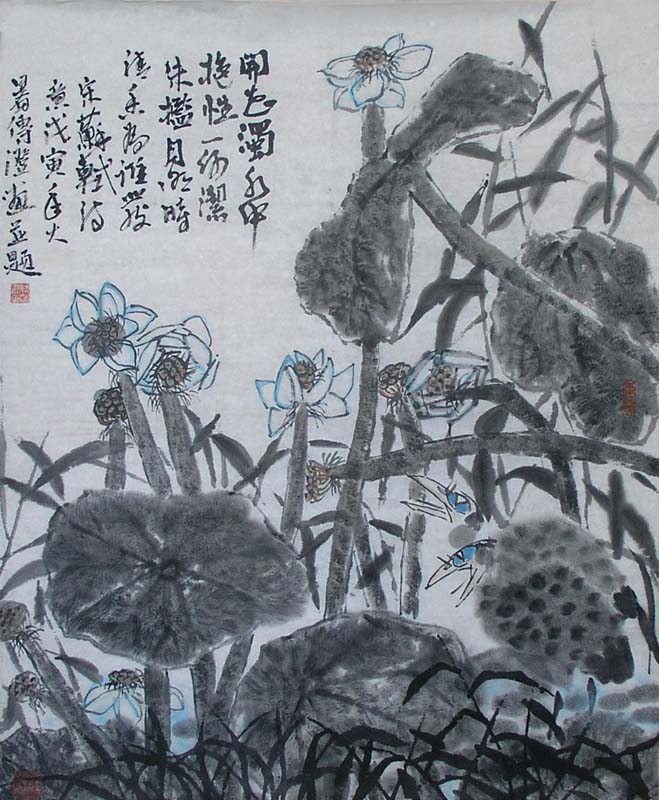 開花濁水中
抱性一何潔
朱檻月明時
清香為誰發
宋蘇軾詩
意戊寅年火
暑傳澄並題